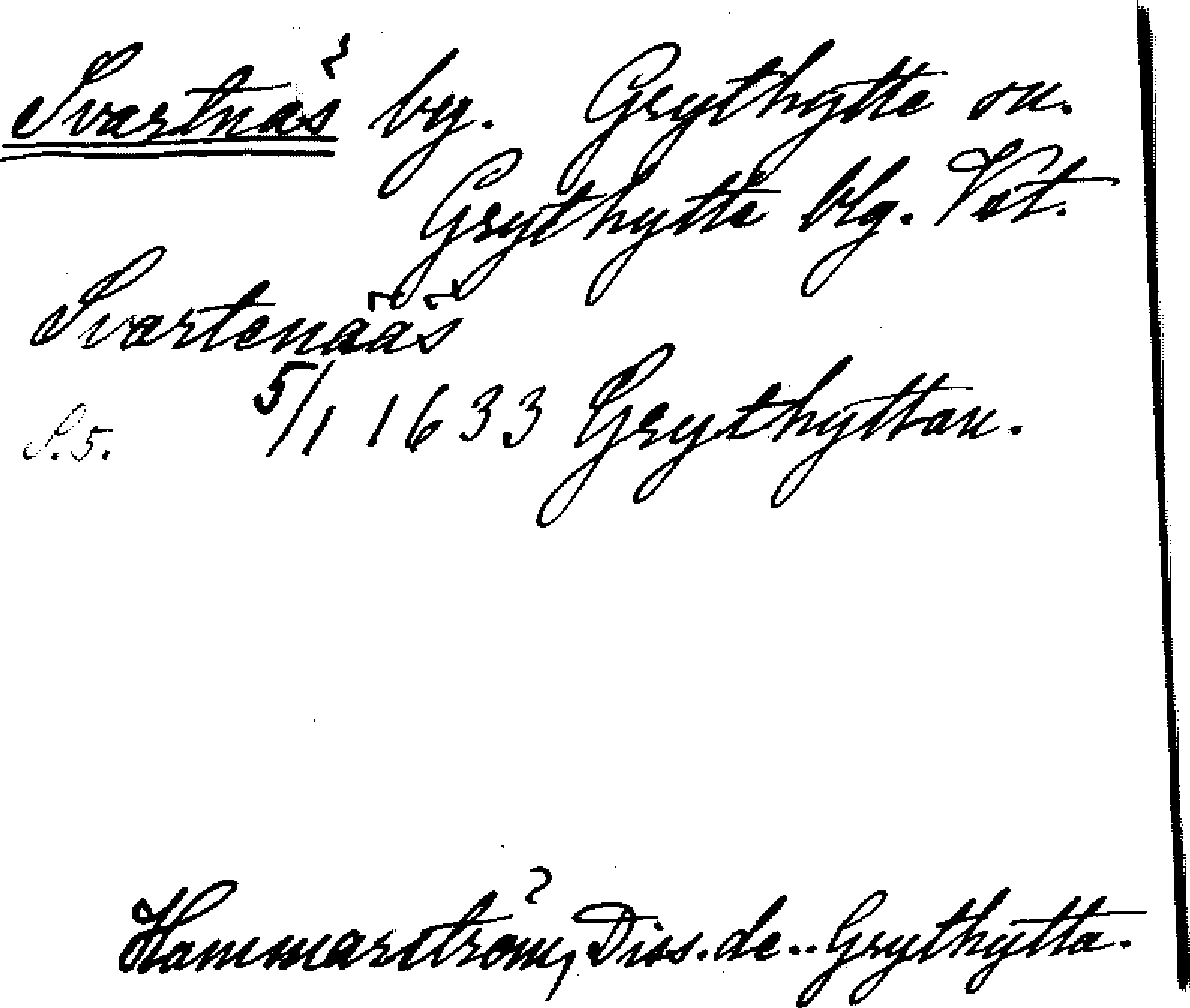 Svartnäs by. Grythytte sn.
Grythytte blg. Vst.
Svartenääs
S.5. 5/1 1633 Grythyttan.
Hammarström, Diss. de.. Grythytta.